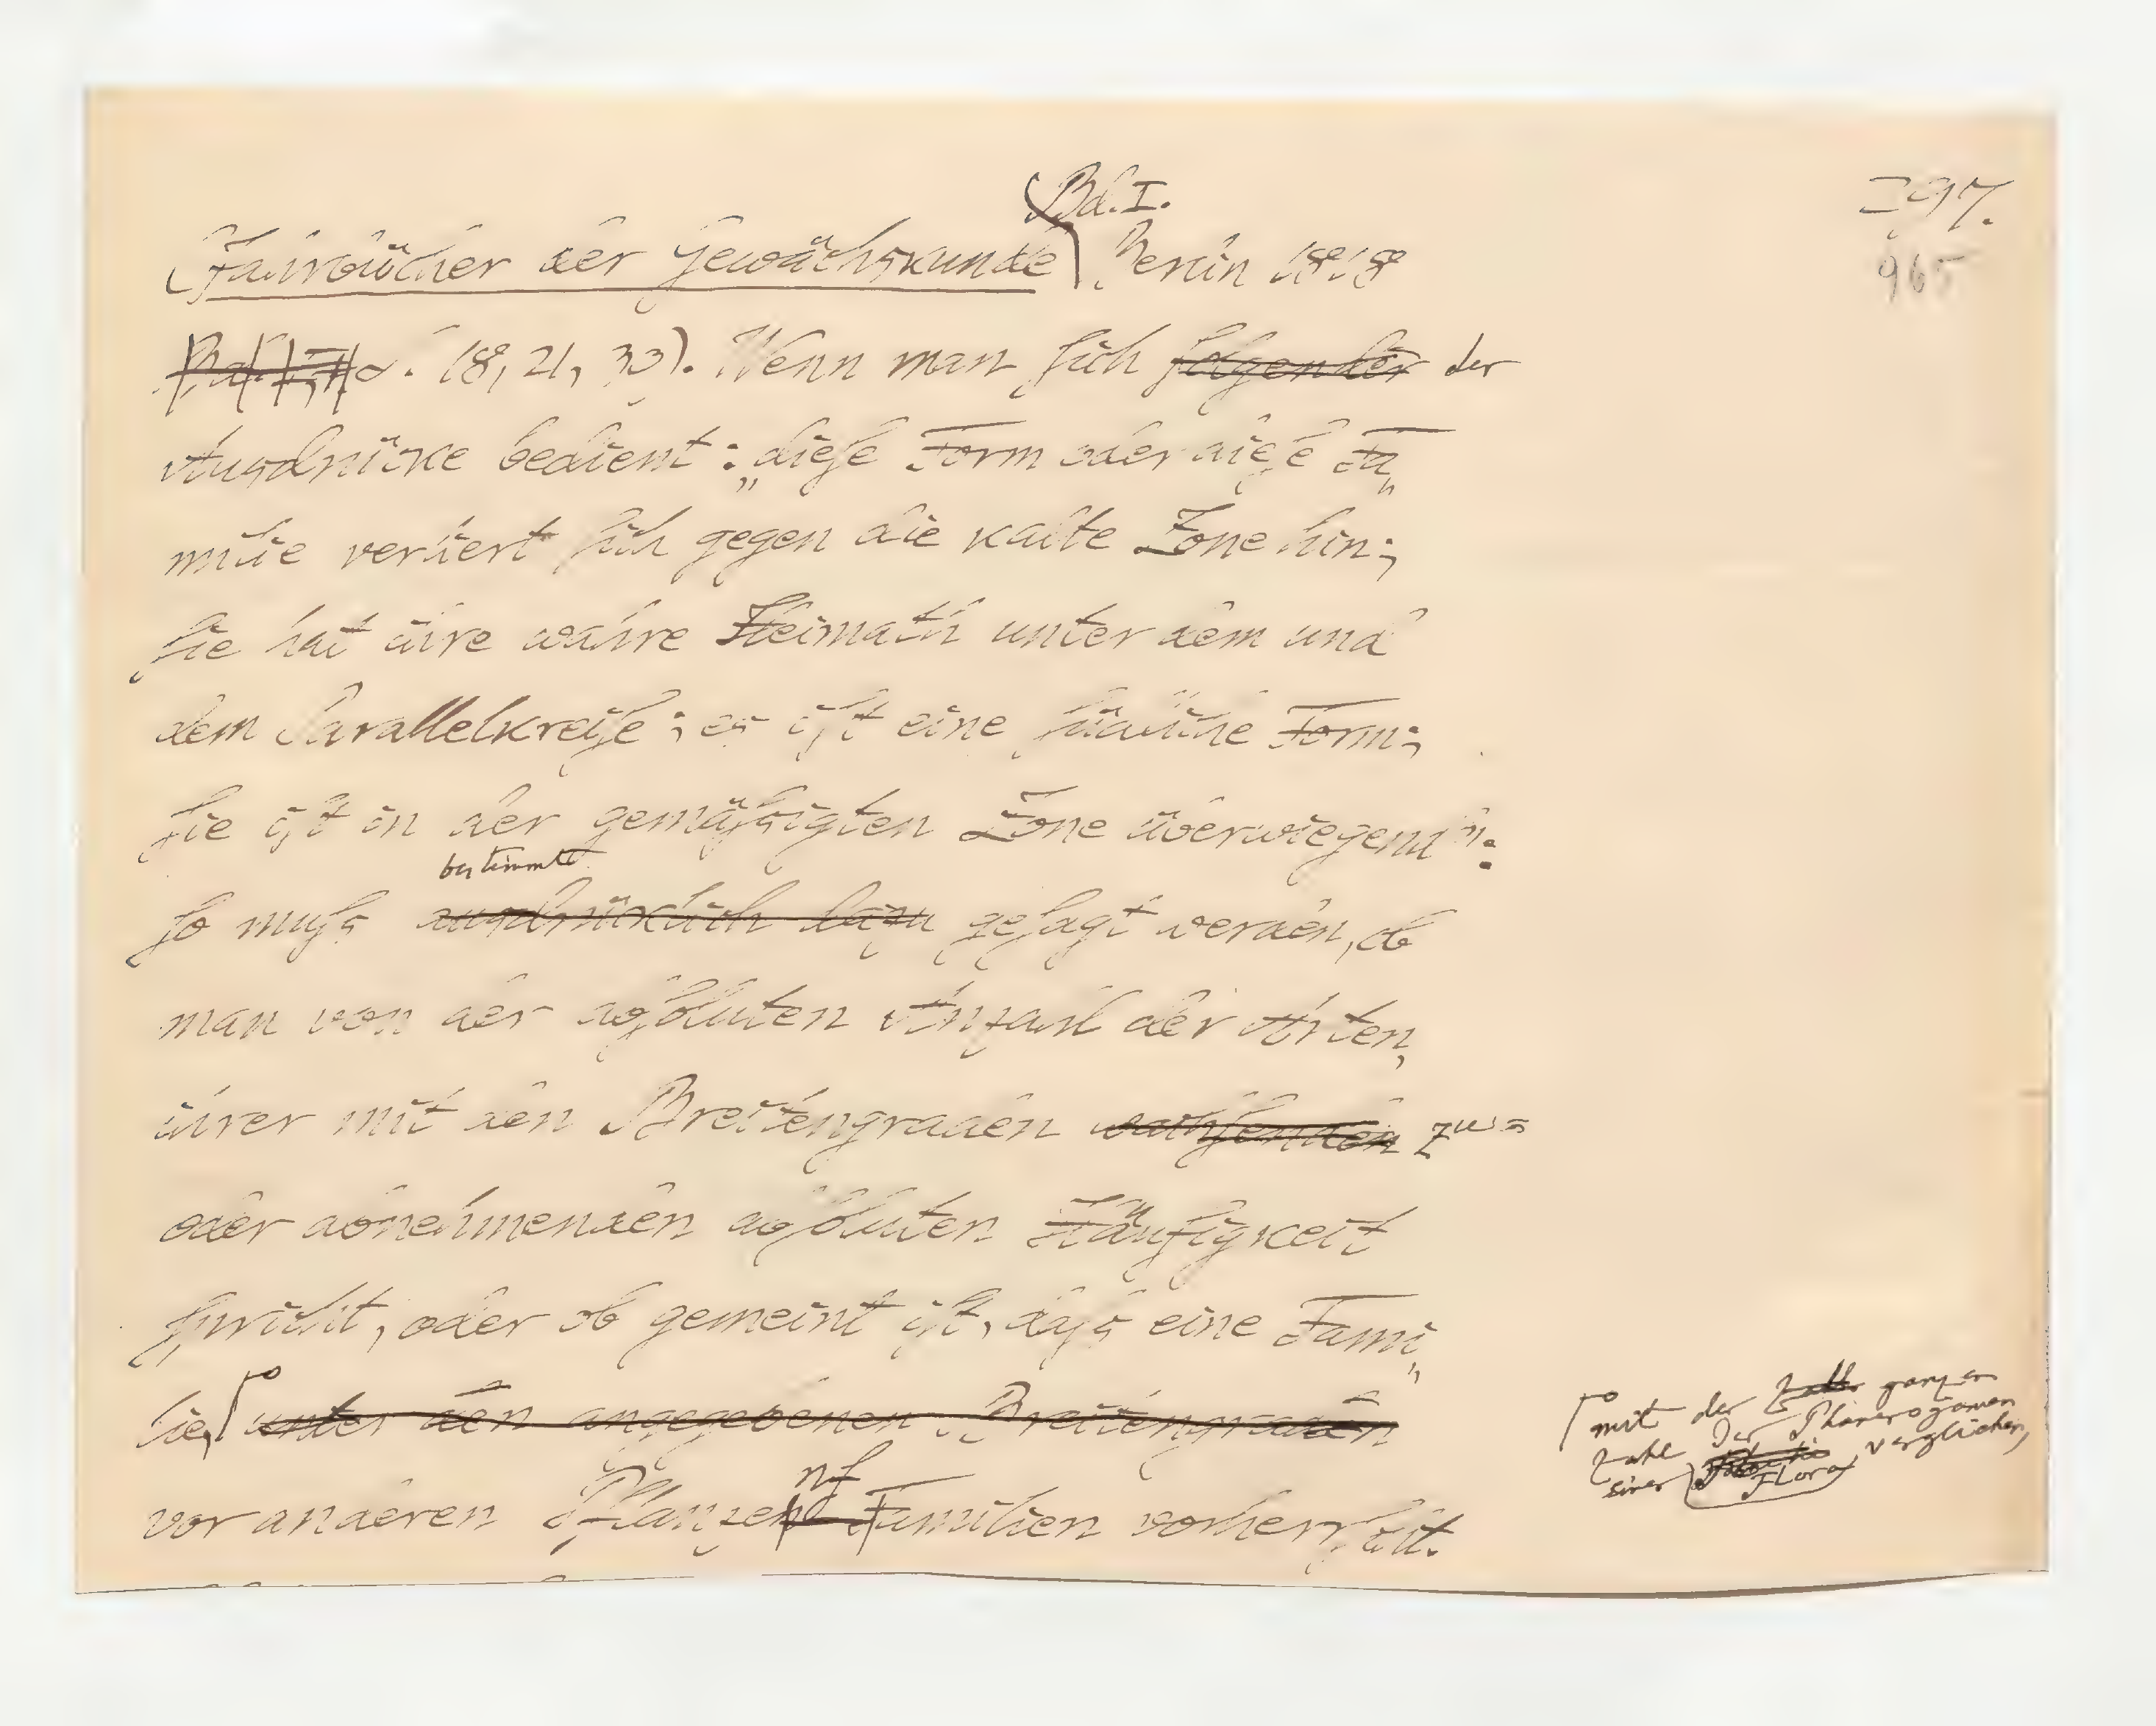 Bd. I.
297.
(Jahrbücher der Gewächskunde) Berlin 1818
965
Bd. I, S. 18, 21, 30). Wenn man ſich folgender der
Ausdrücke bedient: „dieſe Form oder dieſe Fa„
milie verliert ſich gegen die kalte Zone hin;
ſie hat ihre wahre Heimath unter dem und
dem Parallelkreiſe; es iſt eine ſüdliche Form;
ſie iſt in der gemäſsigten Zone überwiegend“:
bestimmt
ſo muſs ausdrücklich dazu geſagt werden, ob
man von der abſoluten Anzahl der Arten,
ihrer mit den Breitengraden wachſenden zu=
oder abnehmenden abſoluten Häufigkeit
ſpricht, oder ob gemeint iſt, daſs eine Fami„
lie, unter den angegebenen Breitengraden
mit der Zahl ganzen
Zahl der Phanerogamen
einer Flora, verglichen,
vor anderen Pflanzen Familien vorherrſcht.